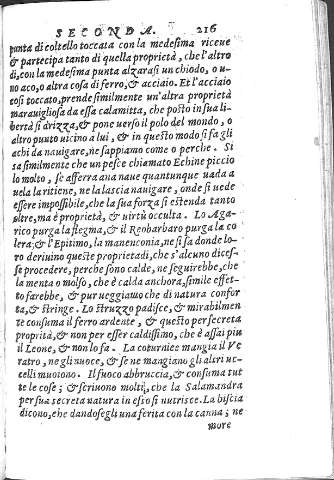 SECONDA. 216
punta di coltello toccata con la medesima riceue
& partecipa tanto di quella proprietà, che l'altro
dì, con la medesima punta alzarasi un chiodo, o u-
no aco, o altra cosa di ferro, & acciaio. Et l'acciaio
cosi toccato, prende similmente un'altra proprietà
marauigliosa da essa calamitta, che posto in sua li-
bertà si drizza, & pone uerso il polo del mondo, o
altro punto uicino a lui, & in questo modo si fa gli
achi da nauigare, ne sappiamo come o perche. Si
sa similmente che un pesce chiamato Echine piccio
lo molto, se afferra una naue quantunque uada a
uela la ritiene, ne la lascia nauigare, onde si uede
essere impossibile, che la sua forza si estenda tanto
oltre, ma è proprietà, & uirtù occulta. Lo Aga-
rico purga la flegma, & il Reobarbaro purga la co
lera; & l'Epitimo, la manenconia, ne si sa donde lo-
ro deriuino queste proprietadi, che s'alcuno dices-
se procedere, perche sono calde, ne seguirebbe, che
la menta o molso, che è calda anchora, simile effet-
to farebbe, & pur ueggiamo che di natura confor
ta, & stringe. Lo struzzo padisce, & mirabilmen
te consuma il ferro ardente, & questo per secreta
proprità, & non per esser caldissimo, che è assai piu
il Leone, & non lo fa. La coturnice mangia il Ve
ratro, ne gli nuoce, & se ne mangiano gli altri uc-
celli muoiono. Il fuoco abbruccia, & consuma tut
te le cose; & scriuono molti, che la Salamandra
per sua secreta natura in esso si nutrisce. La biscia
dicono, che dandosegli una ferita con la canna; ne
more